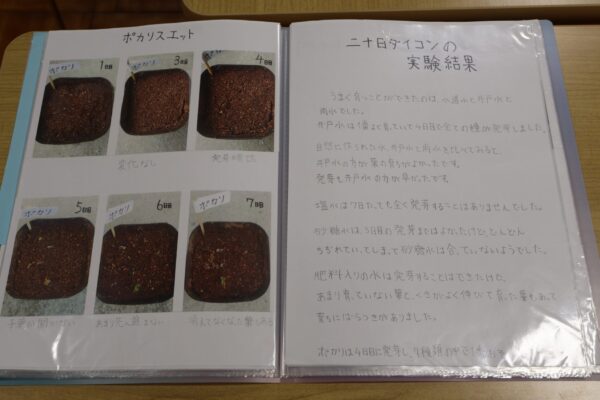 ポカリスエット
ポカリ 1日目
ポカリ 3日目
ポカリ 4日目
変化なし
発芽確認
ポカリ 5日目
ポカリ 6日目
ポカリ 7日目
二十日ダイコンの
実験結果
うまく育つことができたのは、水道水と井戸水と
雨水でした。
井戸水は1番よく育っていて4日目で全ての種が発芽しました。
自然に作られた水、井戸水と雨水をひかくしてみると、
井戸水の方が葉の育ちがよかったです。
発芽も井戸水の方が早かったです。
塩水は7日たっても全く発芽することはありませんでした。
砂糖水は、5日目の発芽まではよかったけど、どんどん
ちぢれていってしまって砂糖水は合っていないようでした。
肥料入りの水は発芽することはできたけど、
あまり育っていない葉と、くきがよく伸びて育った葉もあって
育ちにばらつきがありました。
ポカリは4日目に発芽し、